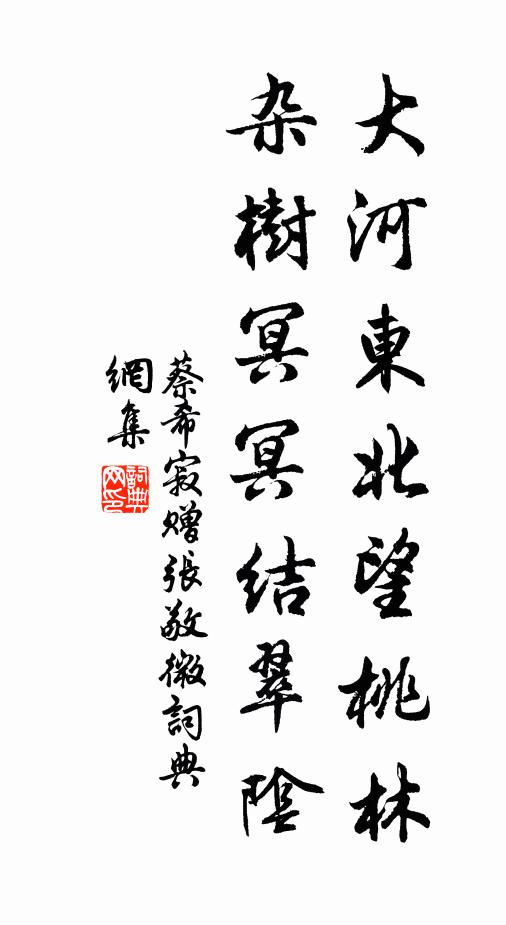 大河東北望桃林
杂樹冥冥結翠陰
蔡希寂贈張敬微詞典
網集
詞典網印